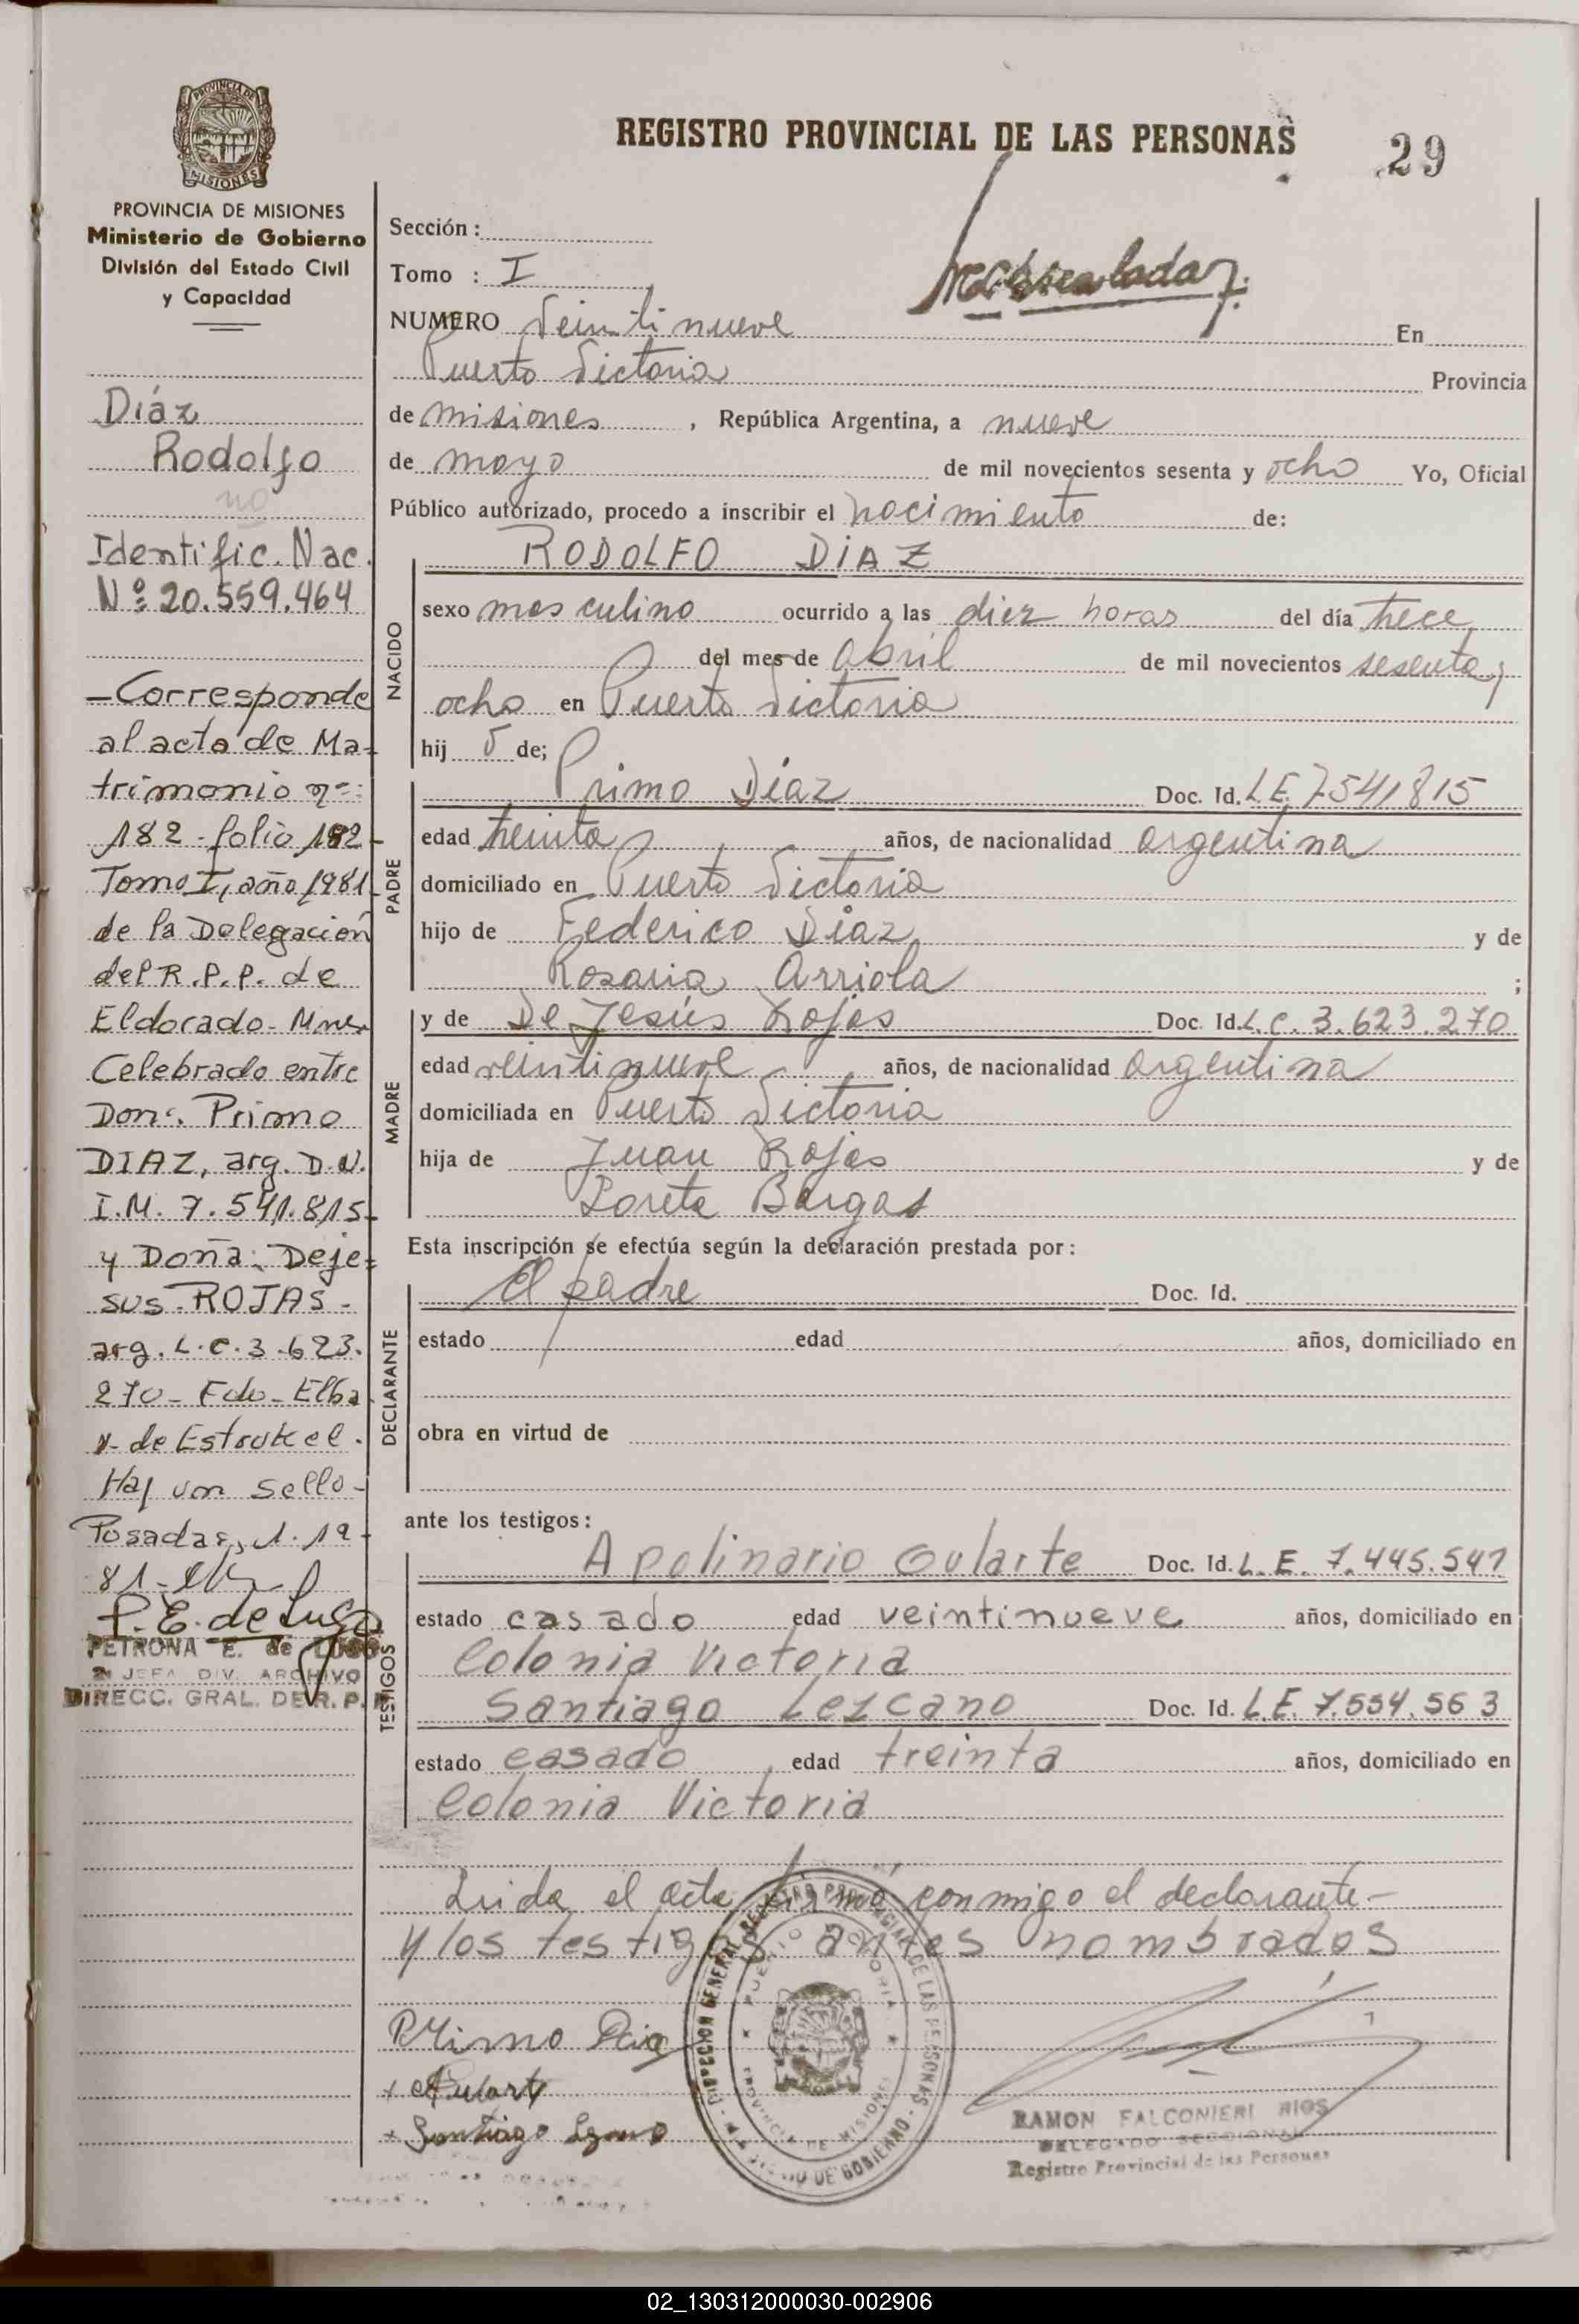 REGISTRO PROVINCIAL DE LAS PERSONAS
29
PROVINCIA DE MISIONES
PROVINCIA DE MISIONES
Ministerio de Gobierno
División del Estado Civil
y Capacidad
Díaz
Rodolfo
no
Identific. Nac.
Nº 20.559.464
-Corresponde
al acta de Ma-
trimonio nº:
182 - folio 182 -
Tomo I, año 1981 -
de la Delegación
del R.P.P. de
Eldorado - Mnes.
Celebrado entre
Don: Primo
DIAZ, arg. D.N.
I.M. 7.541.815 -
y Doña: Deje=
sus ROJAS -
arg. L.C. 3.623.
270 - Fdo - Elba
de Estrukel.
Hay un sello -
Posadas, 1.12
81-
P.E. de Lugo
PETRONA E. de LUGO
JEFA DIV. ARCHIVO
DIRECC. GRAL. DE R. P. P
Sección:
Tomo : I
NUMERO Veinti nueve En
Puerto Victoria Provincia
de misiones , República Argentina, a nueve
de mayo de mil novecientos sesenta y ocho Yo, Oficial
Público autorizado, procedo a inscribir el nacimiento de:
NACIDO
RODOLFO DIAZ
sexo masculino ocurrido a las diez horas del día trece
del mes de abril de mil novecientos sesenta y
ocho en Puerto Victoria
hij o de;
PADRE
Primo Díaz Doc. Id. L.E. 7541815
edad treinta años, de nacionalidad argentina
domiciliado en Puerto Victoria
hijo de Federico Díaz y de
Rosaria Arriola ;
MADRE
y de De Jesús Rojas Doc. Id. L.C. 3.623.270
edad veinti nueve años, de nacionalidad argentina
domiciliada en Puerto Victoria
hija de Juan Rojas y de
Loreta Bargas
Esta inscripción se efectúa según la declaración prestada por:
DECLARANTE
El padre Doc. Id.
estado edad años, domiciliado en
obra en virtud de
ante los testigos:
TESTIGOS
Apolinario Oularte Doc. Id. L.E. 7.445.541
estado casado edad veintinueve años, domiciliado en
Colonia Victoria
Santiago Lezcano Doc. Id. L.E. 7.554.563
estado casado edad treinta años, domiciliado en
Colonia Victoria
Leida el acta, firmó conmigo el declarante -
y los testigos antes nombrados
DIRECCION GENERAL REGISTRO PROVINCIAL DE LAS PERSONAS - MINISTERIO DE GOBIERNO
PUERTO VICTORIA
PROVINCIA DE MISIONES
Primo Diaz
Santiago
RAMON FALCONIERI RIOS
DELEGADO SECCIONAL
Registro Provincial de las Personas
02_130312000030-002906